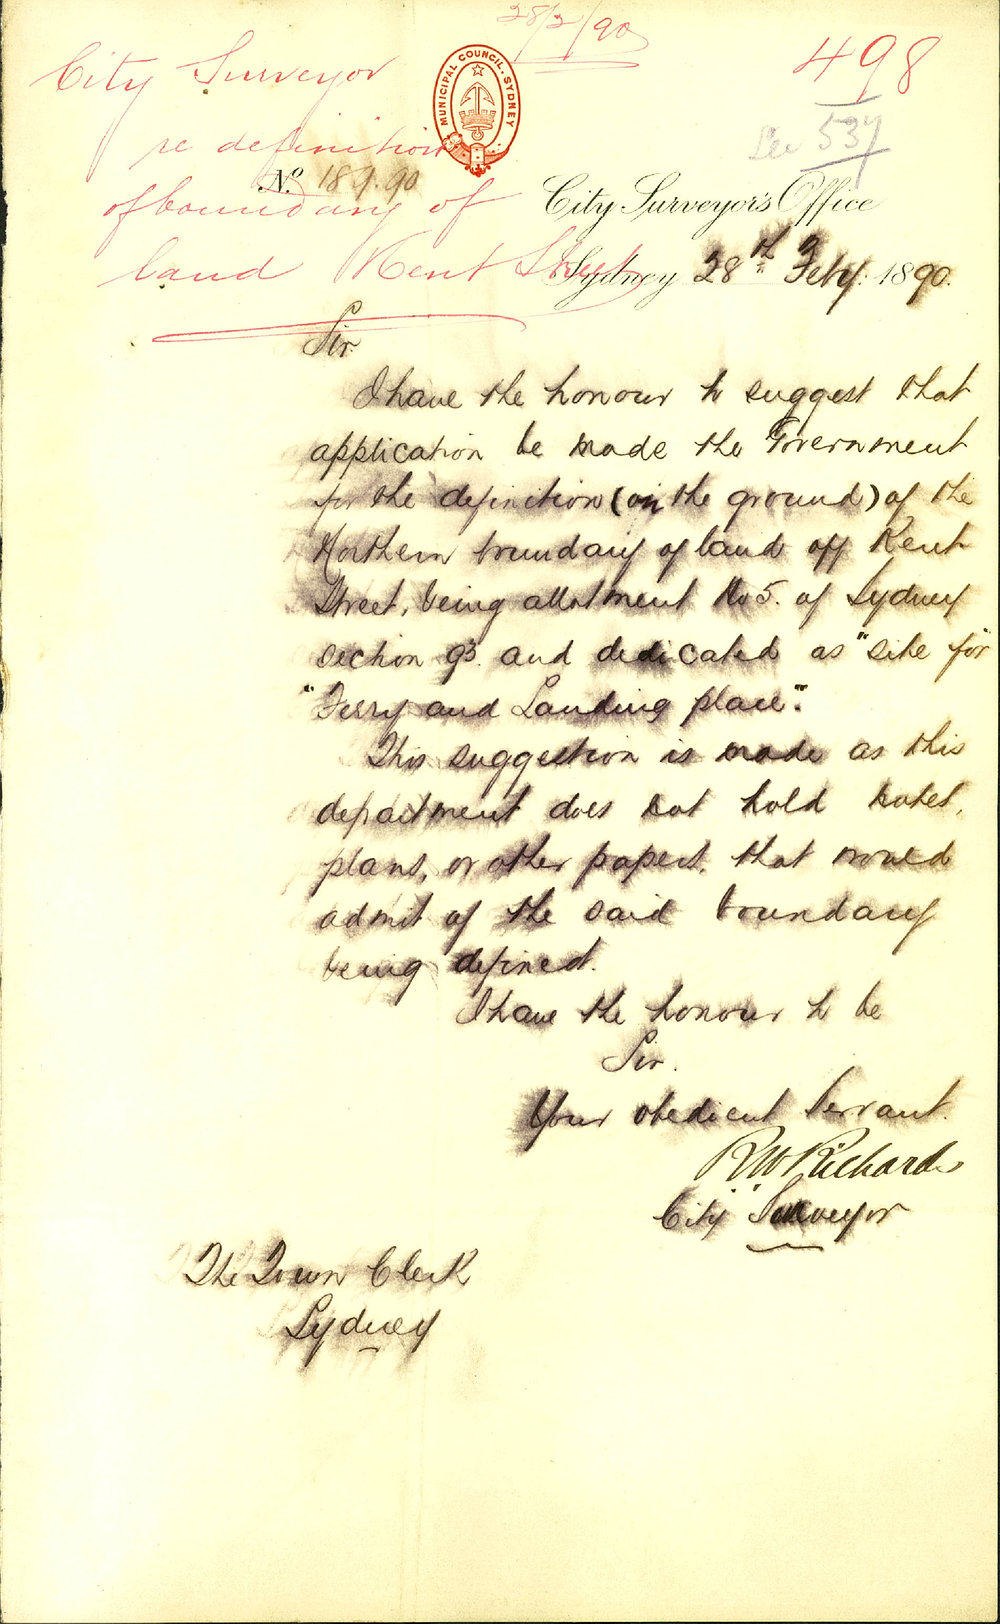 28/2/90
498
City Surveyor
re definition
of boundary of
land Kent Street
MUNICIPAL COUNCIL. SYDNEY
See 537
No. 189.90
City Surveyor's Office
Sydney 28th Feby. 1890.
Sir
I have the honour to suggest that
application be made the Government
for the definition (on the ground) of the
Northern boundary of land off Kent
Street, being allotment No 5. of Sydney
section 93. and dedicated as "site for"
"Ferry and Landing place".
This suggestion is made as this
department does not hold notes,
plans, or other papers, that would
admit of the said boundary
being defined.
I have the honour to be
Sir.
Your obedient Servant.
R W Richards
City Surveyor
The Town Clerk
Sydney